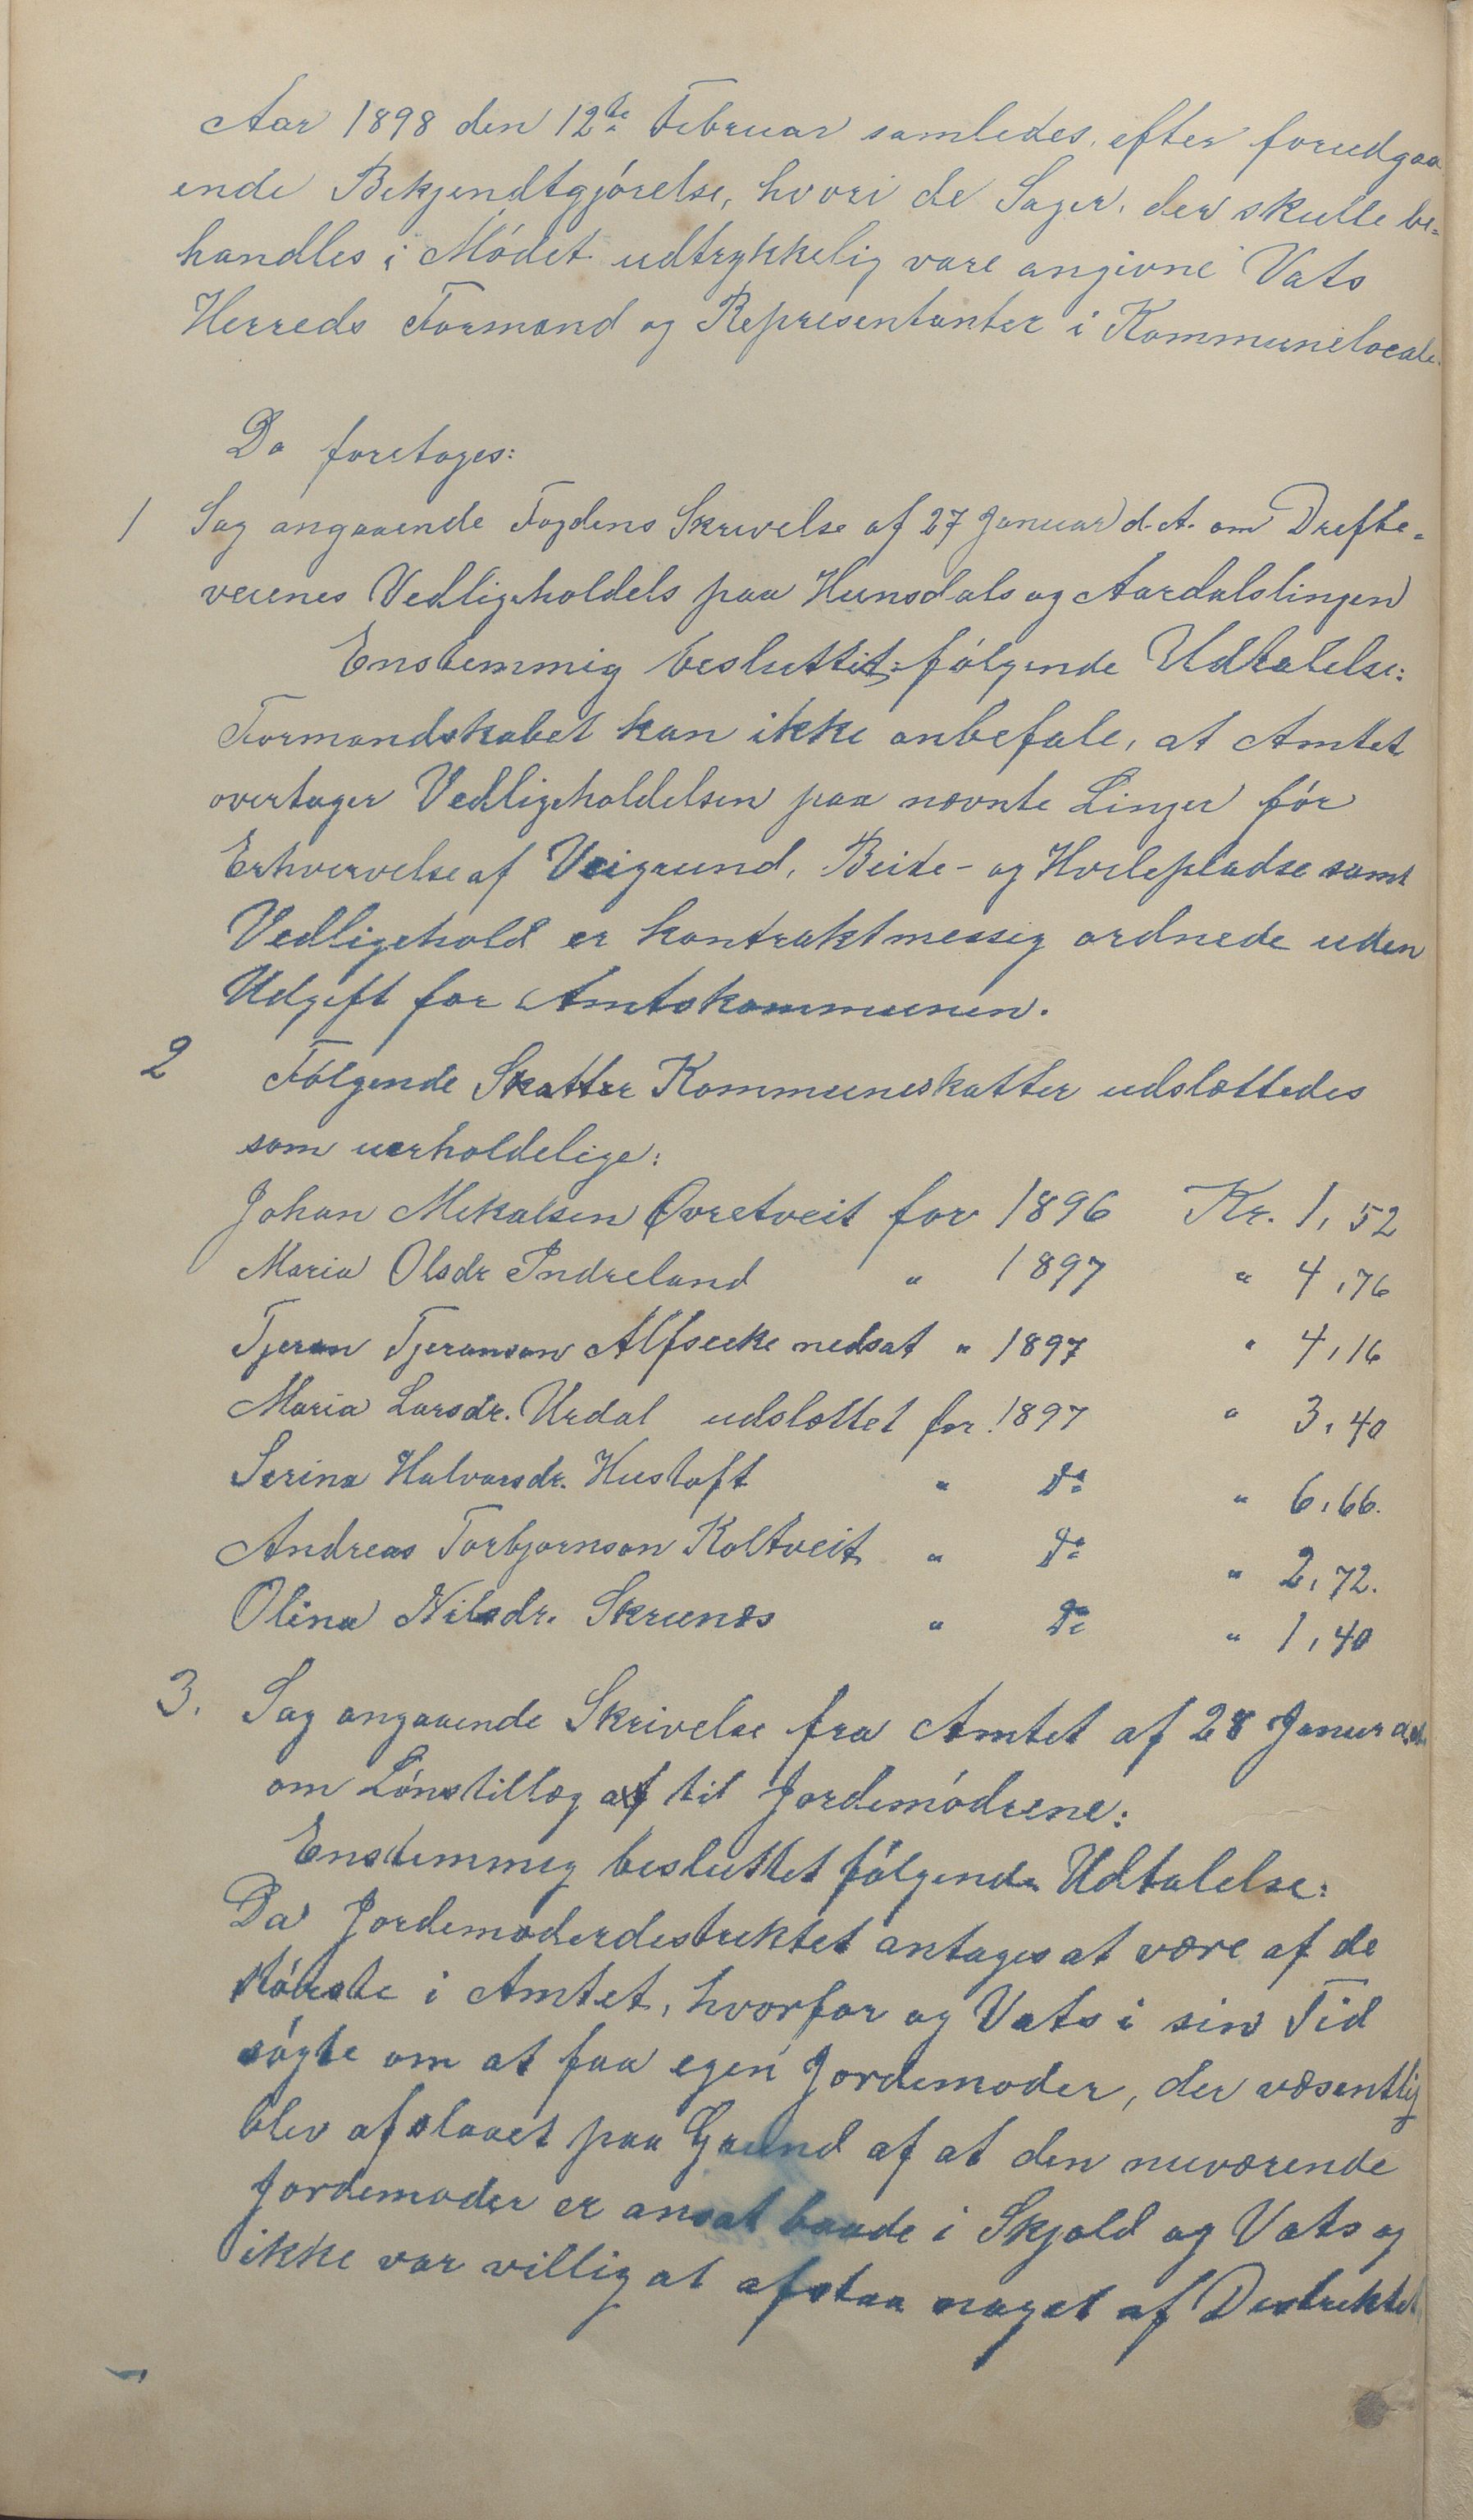 Aar 1898 den 12te Februar samledes, efter forudgaa
ende Bekjendtgjórelse, hvori de Sager, der skulle be=
handles i Módet udtrykkelig vare angivne Vats
Herreds Formend og Representanter i Kommunelocale.
Da foretoges:
1 Sag angaaende Fogdens Skrivelse af 27 Januar d.A. om Drefte=
veienes Vedligeholdels paa Hunsdals og Aardalslinjen
Enstemmig besluttet følgende Udtalelse:
Formandskabet kan ikke anbefale, at Amtet
overtager Vedligeholdelsen paa nævnte Linjer fór
Erhvervelse af Veigrund, Beite- og Hvilepladse samt
Vedligehold er kontraktmessig ordnede uden
Udgift for Amtskommunen.
2 Fólgende Skatter Kommuneskatter udslættedes
som uerholdelige:
Johan Mikalsen Øvretveit for 1896 Kr. 1,52
Maria Olsdr Indreland " 1897 " 4,76
Tjeran Tjeranson Alfseike nedsat " 1897 " 4,16
Maria Larsdr. Urdal udslættet for 1897 " 3,40
Serina Halvorsdr. Hustoft " Do " 6,66.
Andreas Torbjornson Koltveit " Do " 2,72.
Olina Nilsdr. Skrunes " Do " 1,40
3. Sag angaaende Skrivelse fra Amtet af 28 Janur d.A.
om Lónstillæg af til Jordemódrene:
Enstemmig besluttet fólgende Udtalelse:
Da Jordemoderdestriktet antages at være af de
stórste i Amtet, hvorfor og Vats i sin Tid
sógte om at faa egen Jordemoder, der væsentlig
blev afslaaet paa Grund af at den nuværende
Jordemoder er ansat baade i Skjold og Vats og
ikke var villig at afstaa noget af Destriktet